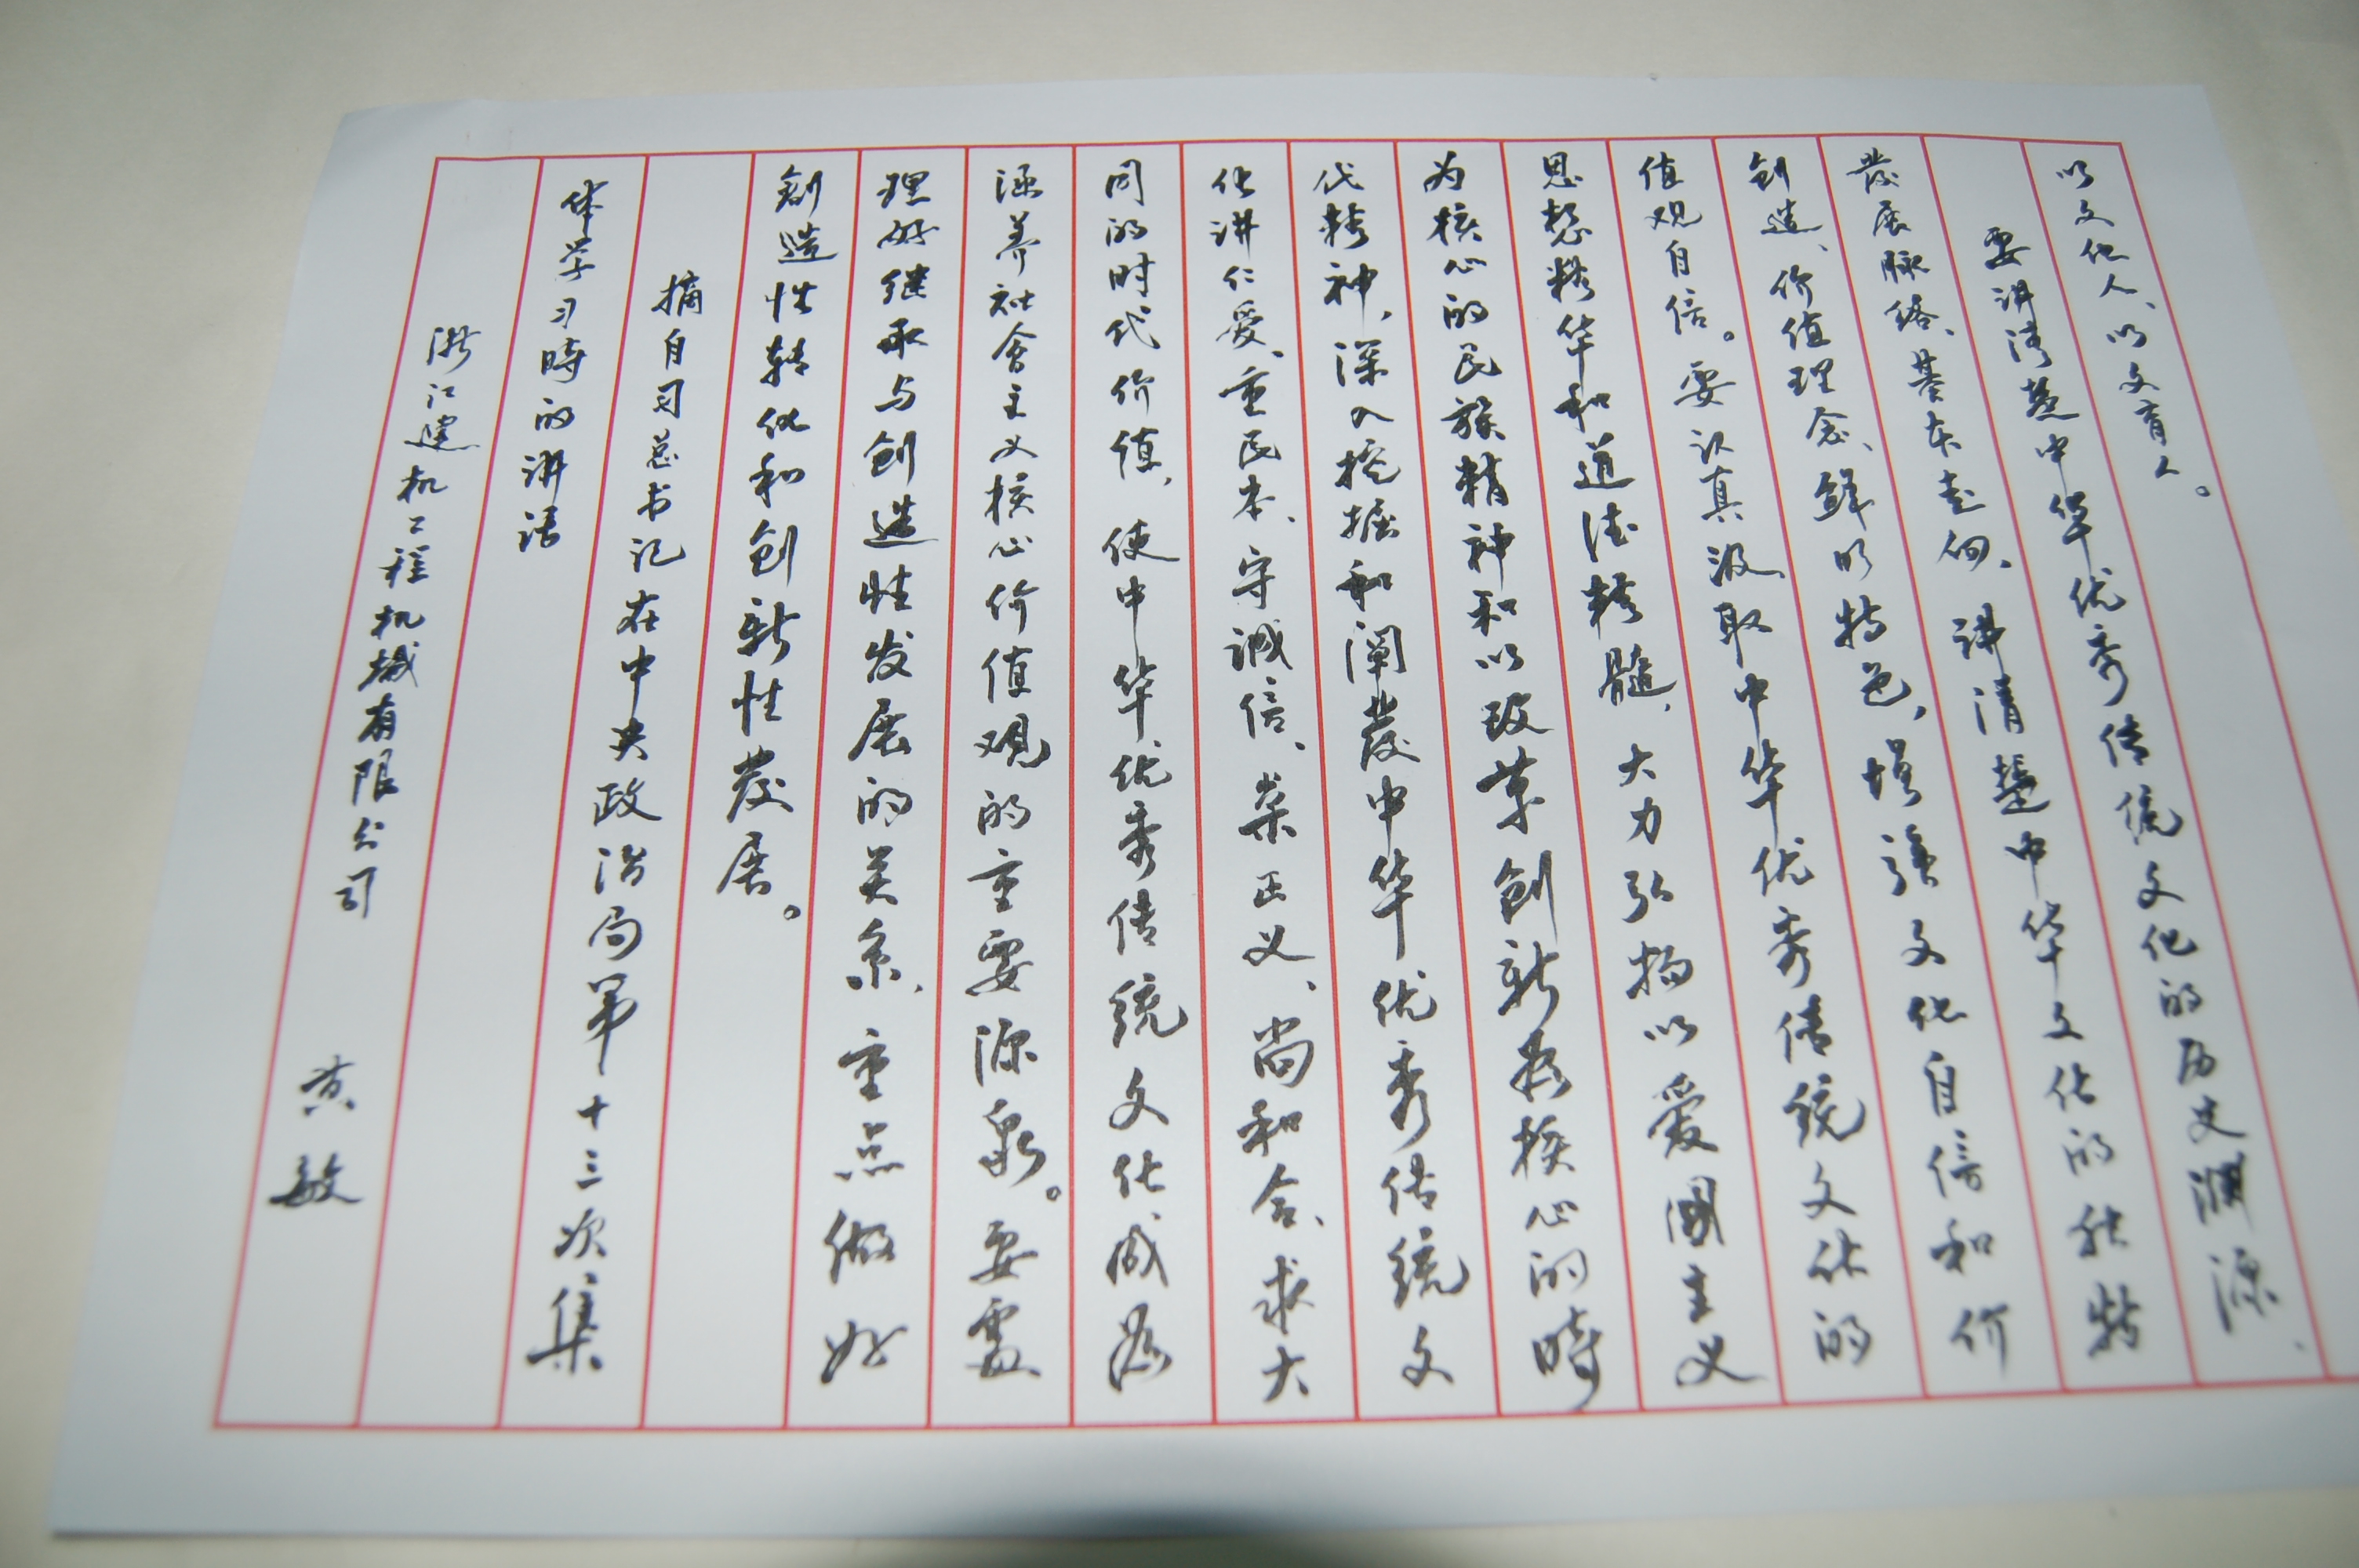 以文化人、以文育人。
要讲清楚中华优秀传统文化的历史渊源、
發展脉络、基本走向，讲清楚中华文化的独特
创造、价值理念、鲜明特色，增强文化自信和价
值观自信。要认真汲取中华优秀传统文化的
思想精华和道德精髓，大力弘扬以爱国主义
为核心的民族精神和以改革创新为核心的時
代精神，深入挖掘和阐發中华优秀传统文
化讲仁爱、重民本、守诚信、崇正义、尚和合、求大
同的时代价值，使中华优秀传统文化成为
涵养社會主义核心价值观的重要源泉。要處
理好继承与创造性发展的关系，重点做好
創造性转化和创新性發展。
摘自习总书记在中央政治局第十三次集
体学习時的讲话
浙江建机工程机械有限公司 黄敏